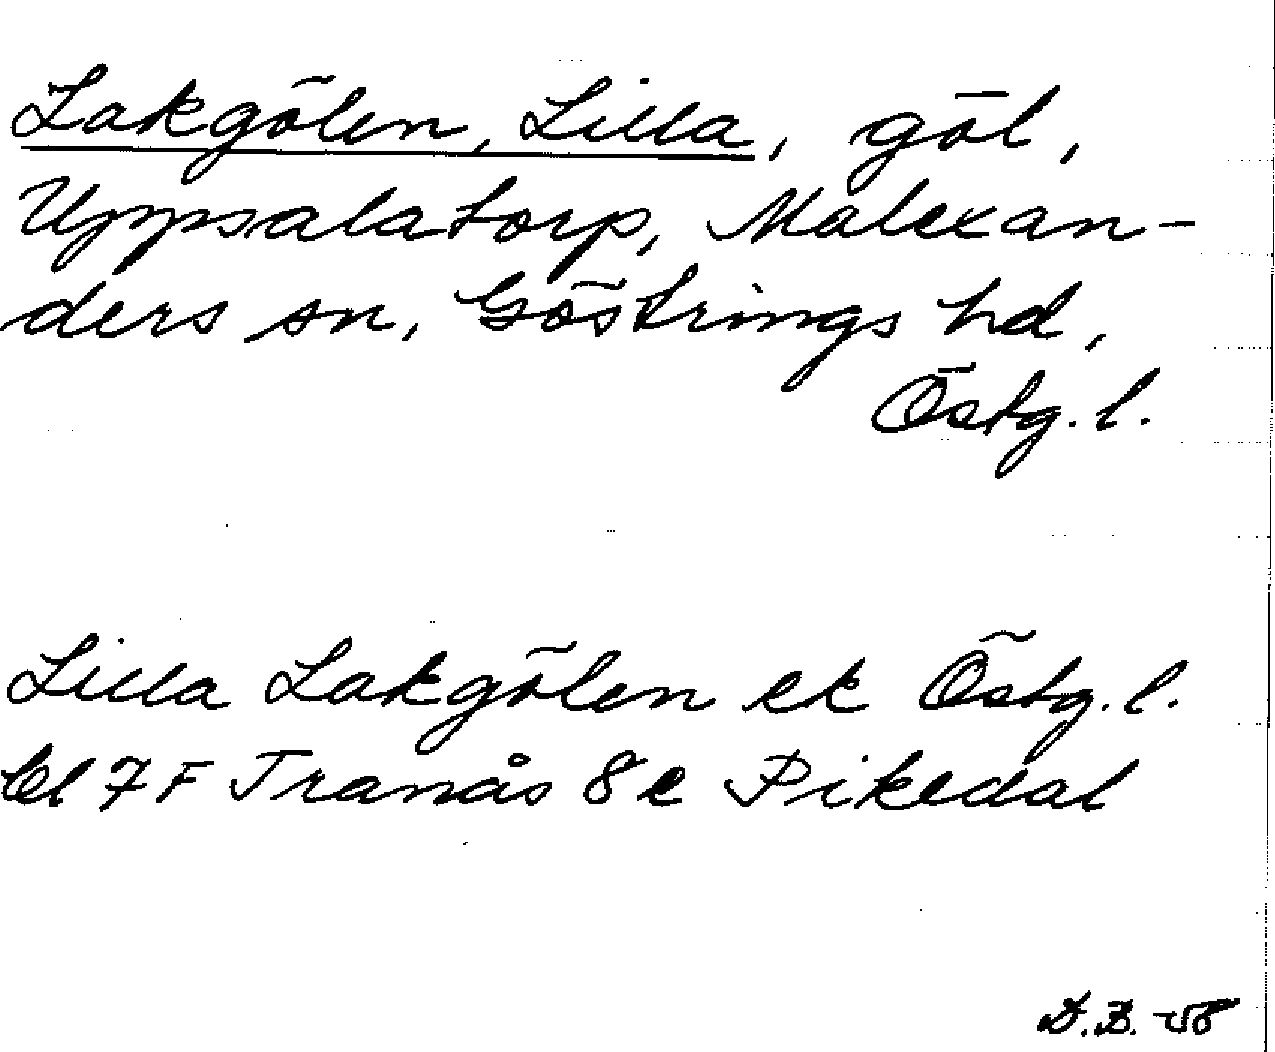 Lakgölen, Lilla, göl,
Uppsalatorp, Malexan-
ders sn, Göstrings hd,
Östg. l.
Lilla Lakgölen ek Östg. l.
bl 7F Tranås 8e Pikedal
D.B. -58